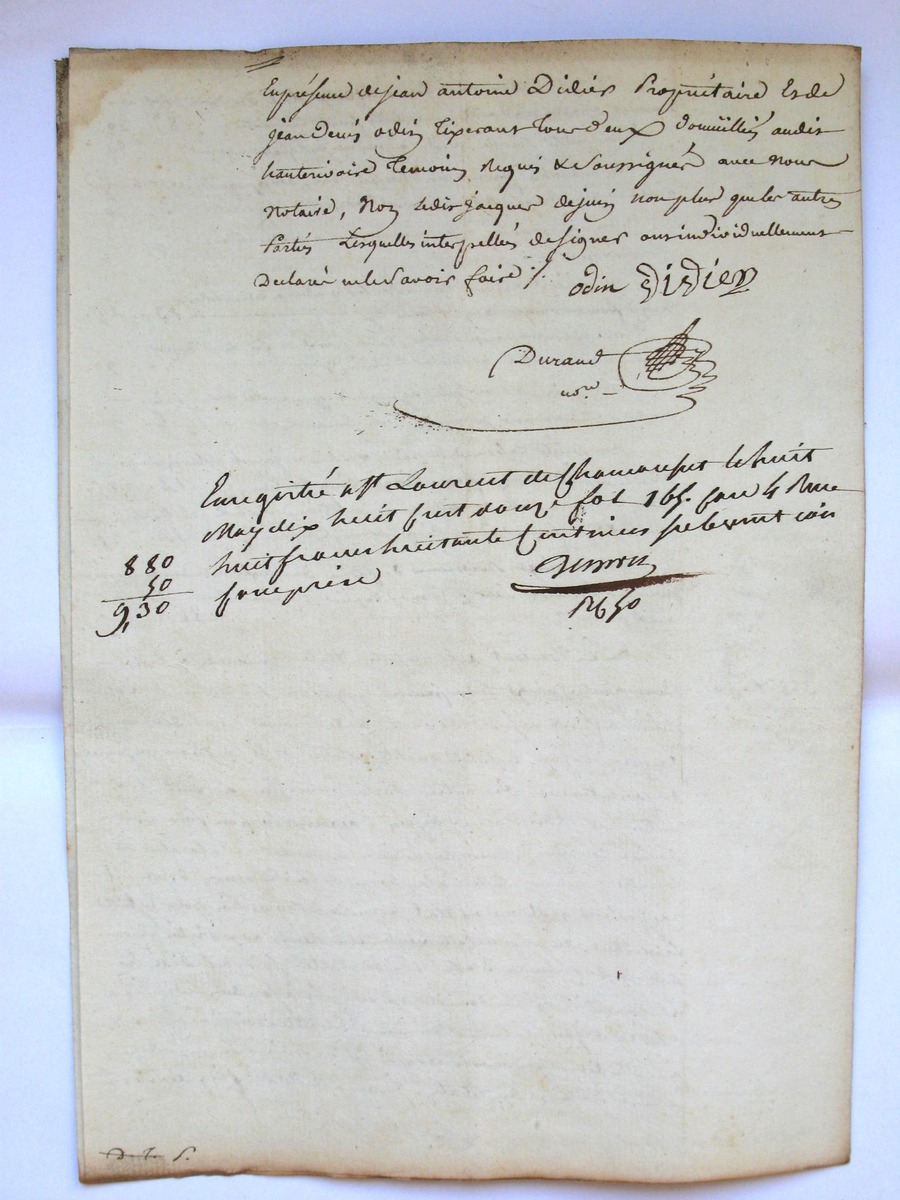 En présence de jean antoine Didier Propriétaire Et de
jean denis odin Tixerant tous deux domiciliés audit
hauterivoire Temoins Requis & Soussignés avec Nous
Notaire, Non Ledit jacques dejuin non plus que les autres
Parties Lesquelles interpellées de signer ont individuellement
Declaré ne le Savoir faire ./.
odin Didier
Durand
nore
Enregistré à St Laurent de Chamousset le huit
May dix huit cent douze fol 165. case 4 Reçu
880 huit francs huitante Centimes subvention
50 comprise
9,30
1650
D. L. S.